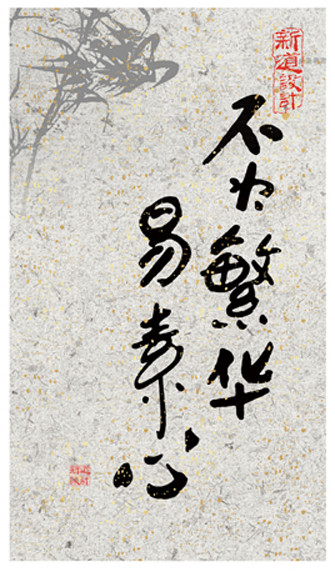 新道設計
不为繁华
易素心